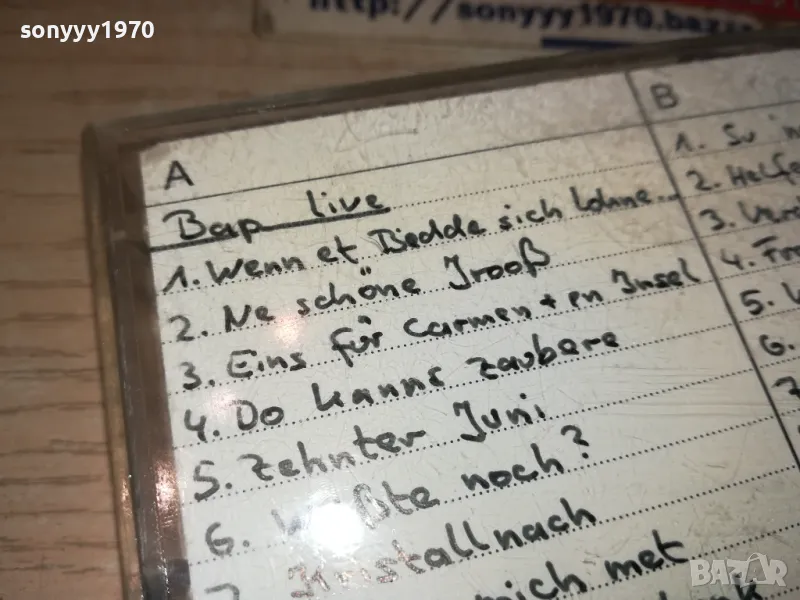 sonyyy1970
http://sonyyy1970.bazar
A
Bap live
1. Wenn et Bedde sich lohne...
2. Ne schöne Jrooß
3. Eins für Carmen + en Insel
4. Do kanns zaubere
5. Zehnter Juni
6. Weißte noch?
7. Kristallnach
mich met
B
1. Su
2. Helfe
3. Verd
4.
5.
6.
7
BAZAR